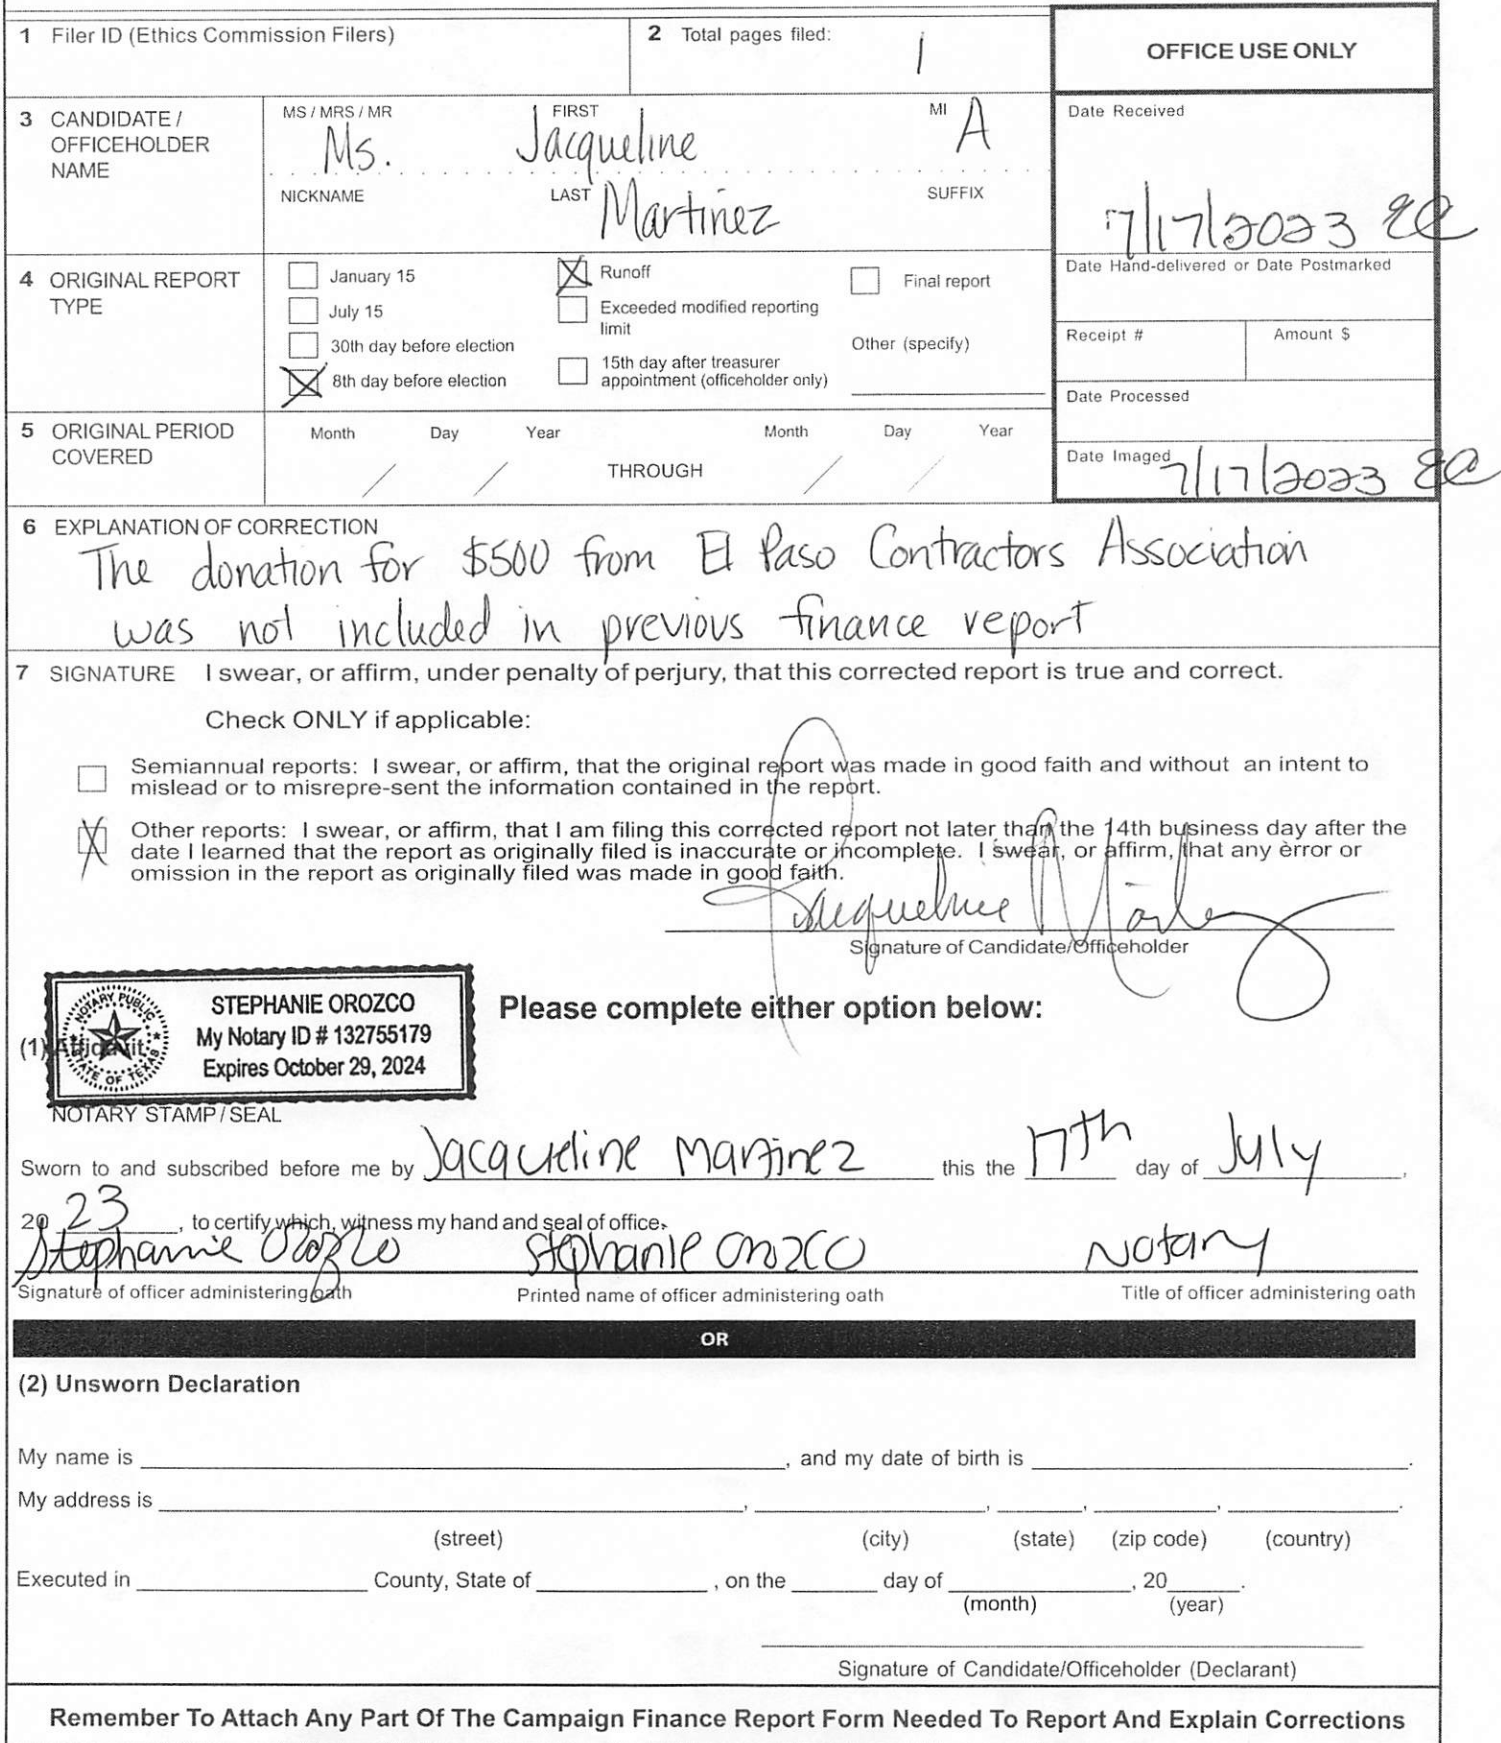 1 Filer ID (Ethics Commission Filers)
2 Total pages filed: 1
OFFICE USE ONLY
3 CANDIDATE / OFFICEHOLDER NAME
MS / MRS / MR Ms.
FIRST Jacqueline
MI A
NICKNAME
LAST Martinez
SUFFIX
Date Received
7/17/2023
Date Hand-delivered or Date Postmarked
Receipt #
Amount $
Date Processed
Date Imaged 7/17/2023
4 ORIGINAL REPORT TYPE
January 15
July 15
30th day before election
8th day before election
Runoff
Exceeded modified reporting limit
15th day after treasurer appointment (officeholder only)
Final report
Other (specify)
5 ORIGINAL PERIOD COVERED
Month Day Year
/ /
THROUGH
Month Day Year
/ /
6 EXPLANATION OF CORRECTION
The donation for $500 from El Paso Contractors Association
was not included in previous finance report
7 SIGNATURE I swear, or affirm, under penalty of perjury, that this corrected report is true and correct.
Check ONLY if applicable:
Semiannual reports: I swear, or affirm, that the original report was made in good faith and without an intent to
mislead or to misrepre-sent the information contained in the report.
Other reports: I swear, or affirm, that I am filing this corrected report not later than the 14th business day after the
date I learned that the report as originally filed is inaccurate or incomplete. I swear, or affirm, that any error or
omission in the report as originally filed was made in good faith.
Jacqueline Martinez
Signature of Candidate/Officeholder
Please complete either option below:
(1) Affidavit
NOTARY PUBLIC
STATE OF TEXAS
STEPHANIE OROZCO
My Notary ID # 132755179
Expires October 29, 2024
NOTARY STAMP / SEAL
Sworn to and subscribed before me by Jacqueline Martinez this the 17th day of July,
20 23, to certify which, witness my hand and seal of office.
Stephanie Orozco Stephanie Orozco Notary
Signature of officer administering oath Printed name of officer administering oath Title of officer administering oath
OR
(2) Unsworn Declaration
My name is , and my date of birth is .
My address is , , , , .
(street) (city) (state) (zip code) (country)
Executed in County, State of , on the day of , 20 .
(month) (year)
Signature of Candidate/Officeholder (Declarant)
Remember To Attach Any Part Of The Campaign Finance Report Form Needed To Report And Explain Corrections